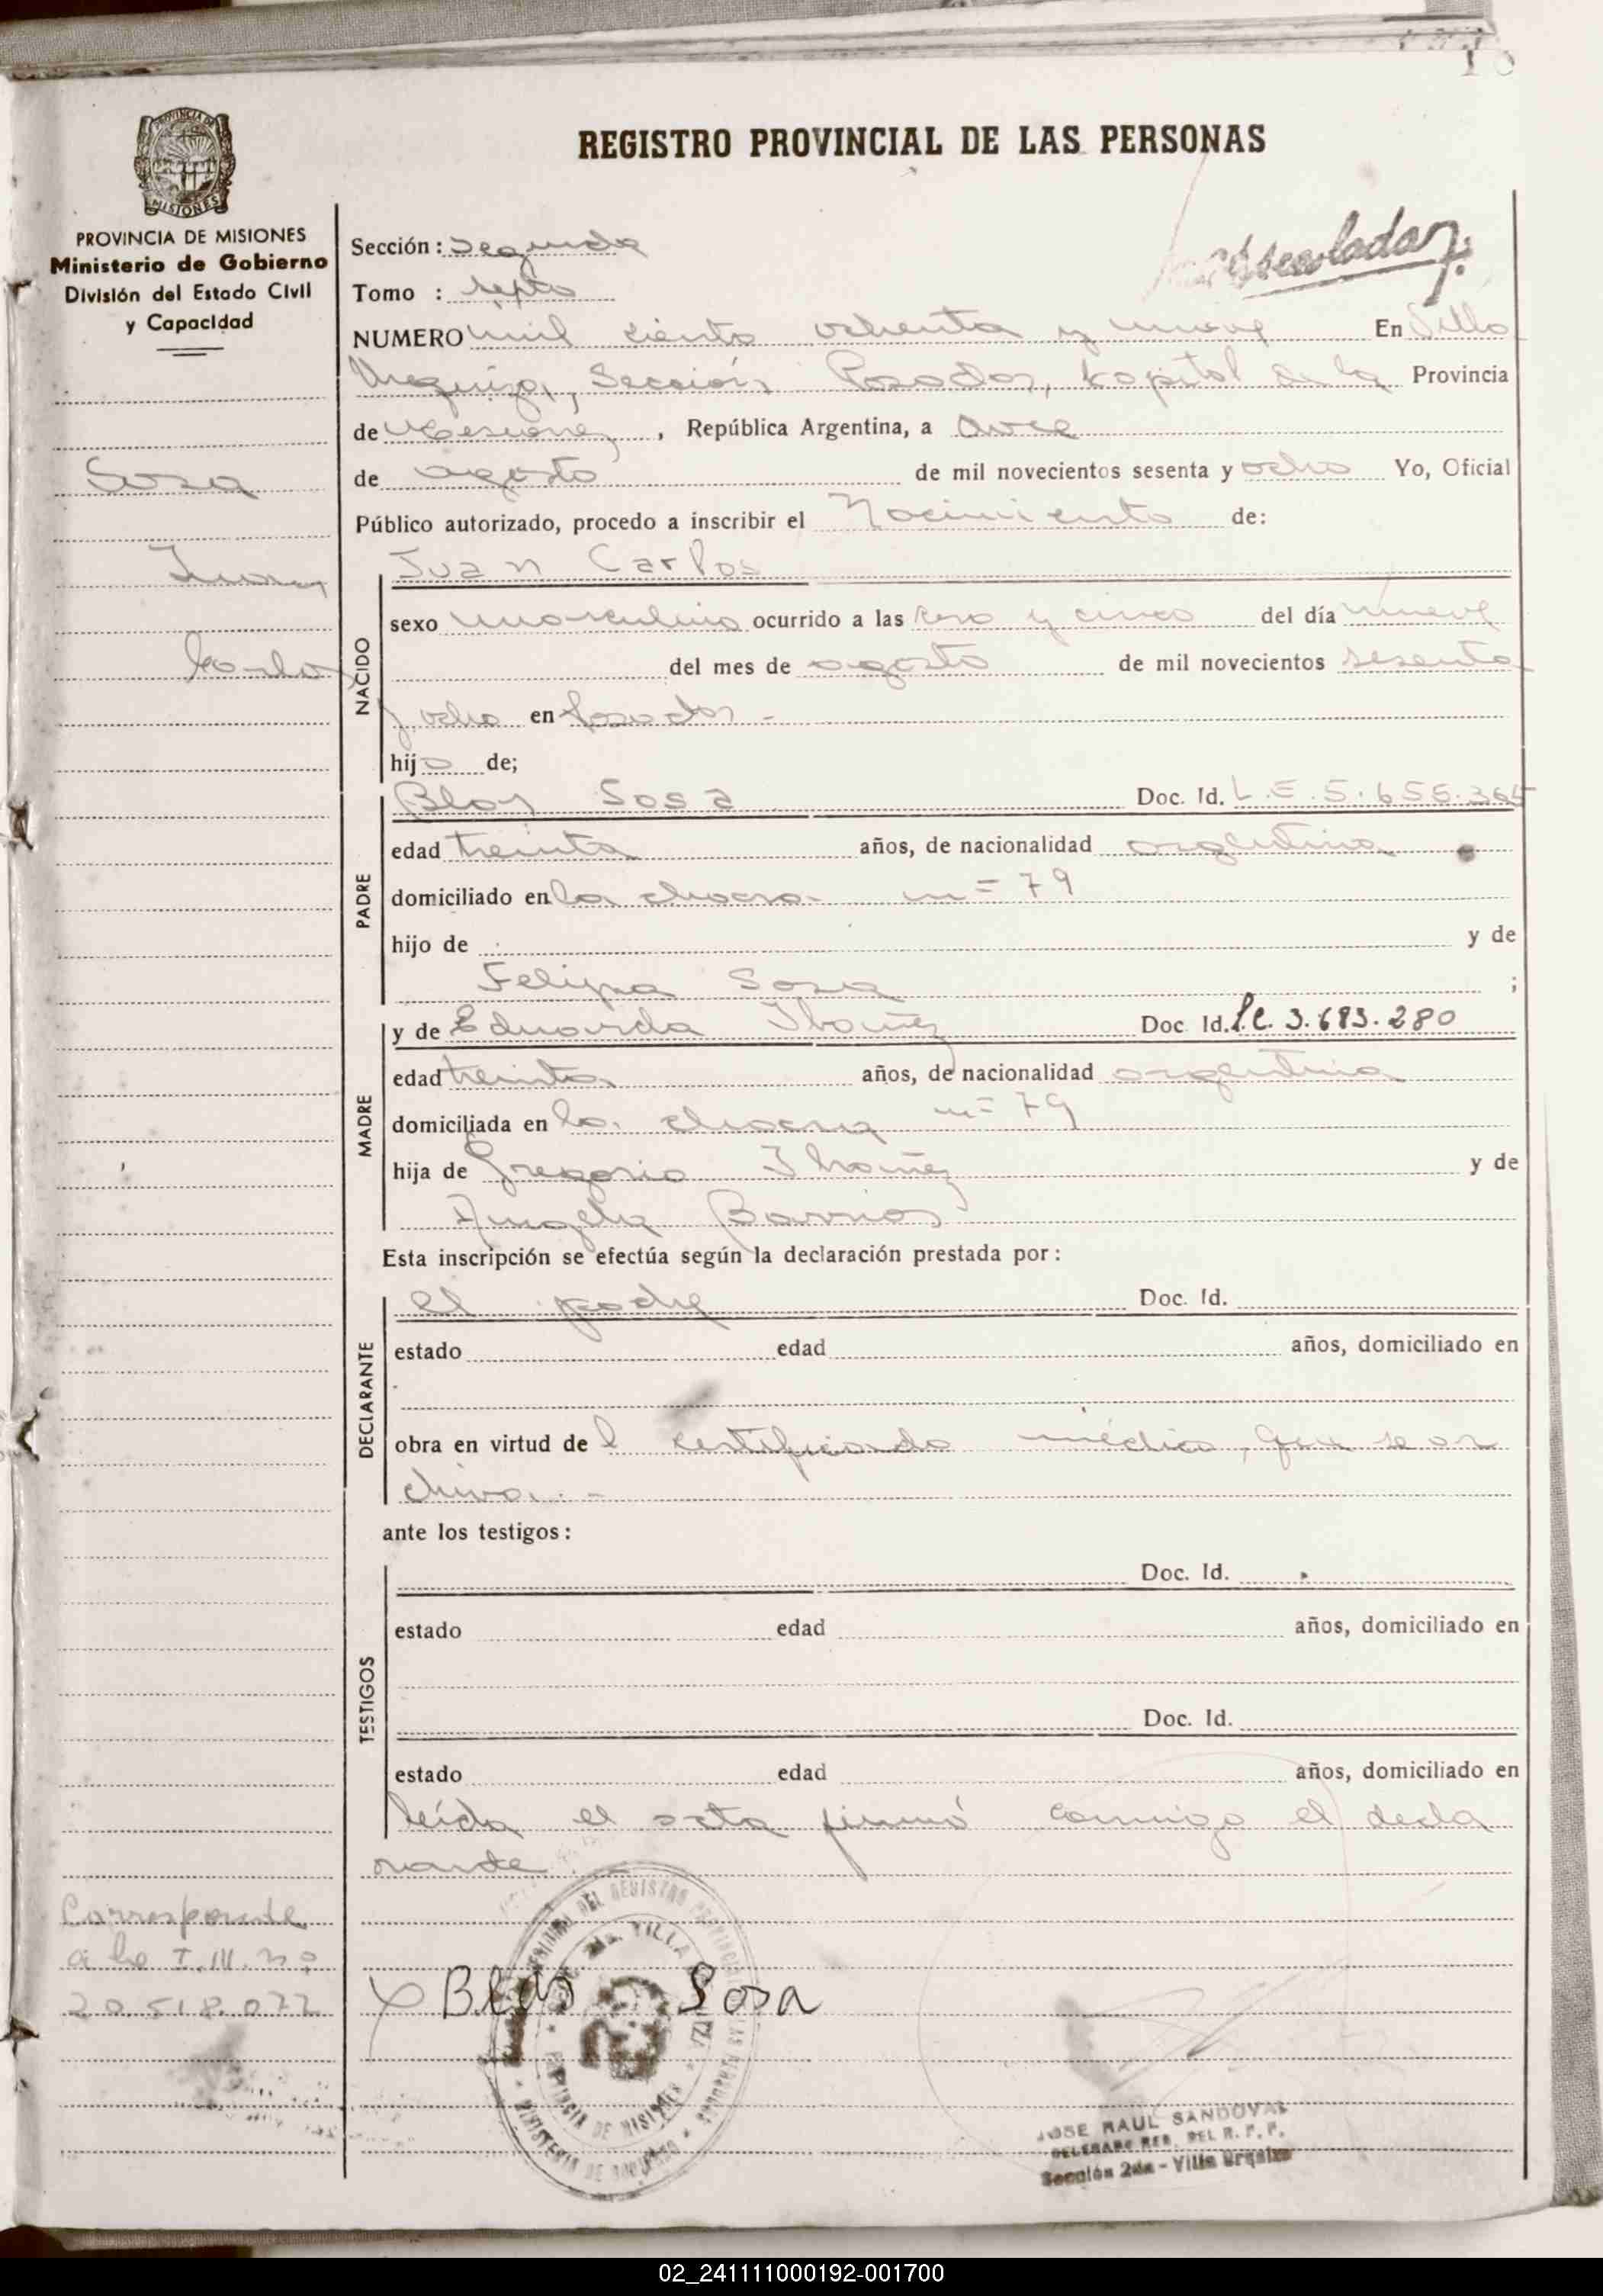 REGISTRO PROVINCIAL DE LAS PERSONAS
PROVINCIA DE MISIONES
PROVINCIA DE MISIONES
Ministerio de Gobierno
División del Estado Civil
y Capacidad
Sosa
Juan
Carlos
Sección: Segunda
Tomo :
NUMERO mil ciento ochenta y nueve En Villa
Urquiza, Sección Posadas, capital de la Provincia
de Misiones, República Argentina, a once
de agosto de mil novecientos sesenta y ocho Yo, Oficial
Público autorizado, procedo a inscribir el Nacimiento de:
Juan Carlos
NACIDO
sexo masculino ocurrido a las cero y cinco del día nueve
del mes de agosto de mil novecientos sesenta
y ocho en Posadas -
hijo de;
PADRE
Blas Sosa Doc. Id. L.E. 5.655.365
edad treinta años, de nacionalidad argentina
domiciliado en la chacra n= 79
hijo de y de
Felipa Sosa ;
MADRE
y de Eduarda Ibañez Doc Id. l.c. 3.683.280
edad treinta años, de nacionalidad argentina
domiciliada en la chacra n= 79
hija de Gregorio Ibañez y de
Angela Barrios
Esta inscripción se efectúa según la declaración prestada por:
DECLARANTE
el padre Doc. Id.
estado edad años, domiciliado en
obra en virtud del certificado médico, que se ar
chiva. -
ante los testigos:
TESTIGOS
Doc. Id.
estado edad años, domiciliado en
Doc. Id.
estado edad años, domiciliado en
leída el acta firmó conmigo el decla
rante
Corresponde
a la I. III. nº
20.518.072
Blas Sosa
JOSE RAUL SANDOVAL
DEL R. P. P.
Sección 2da - Villa Urquiza
02_241111000192-001700